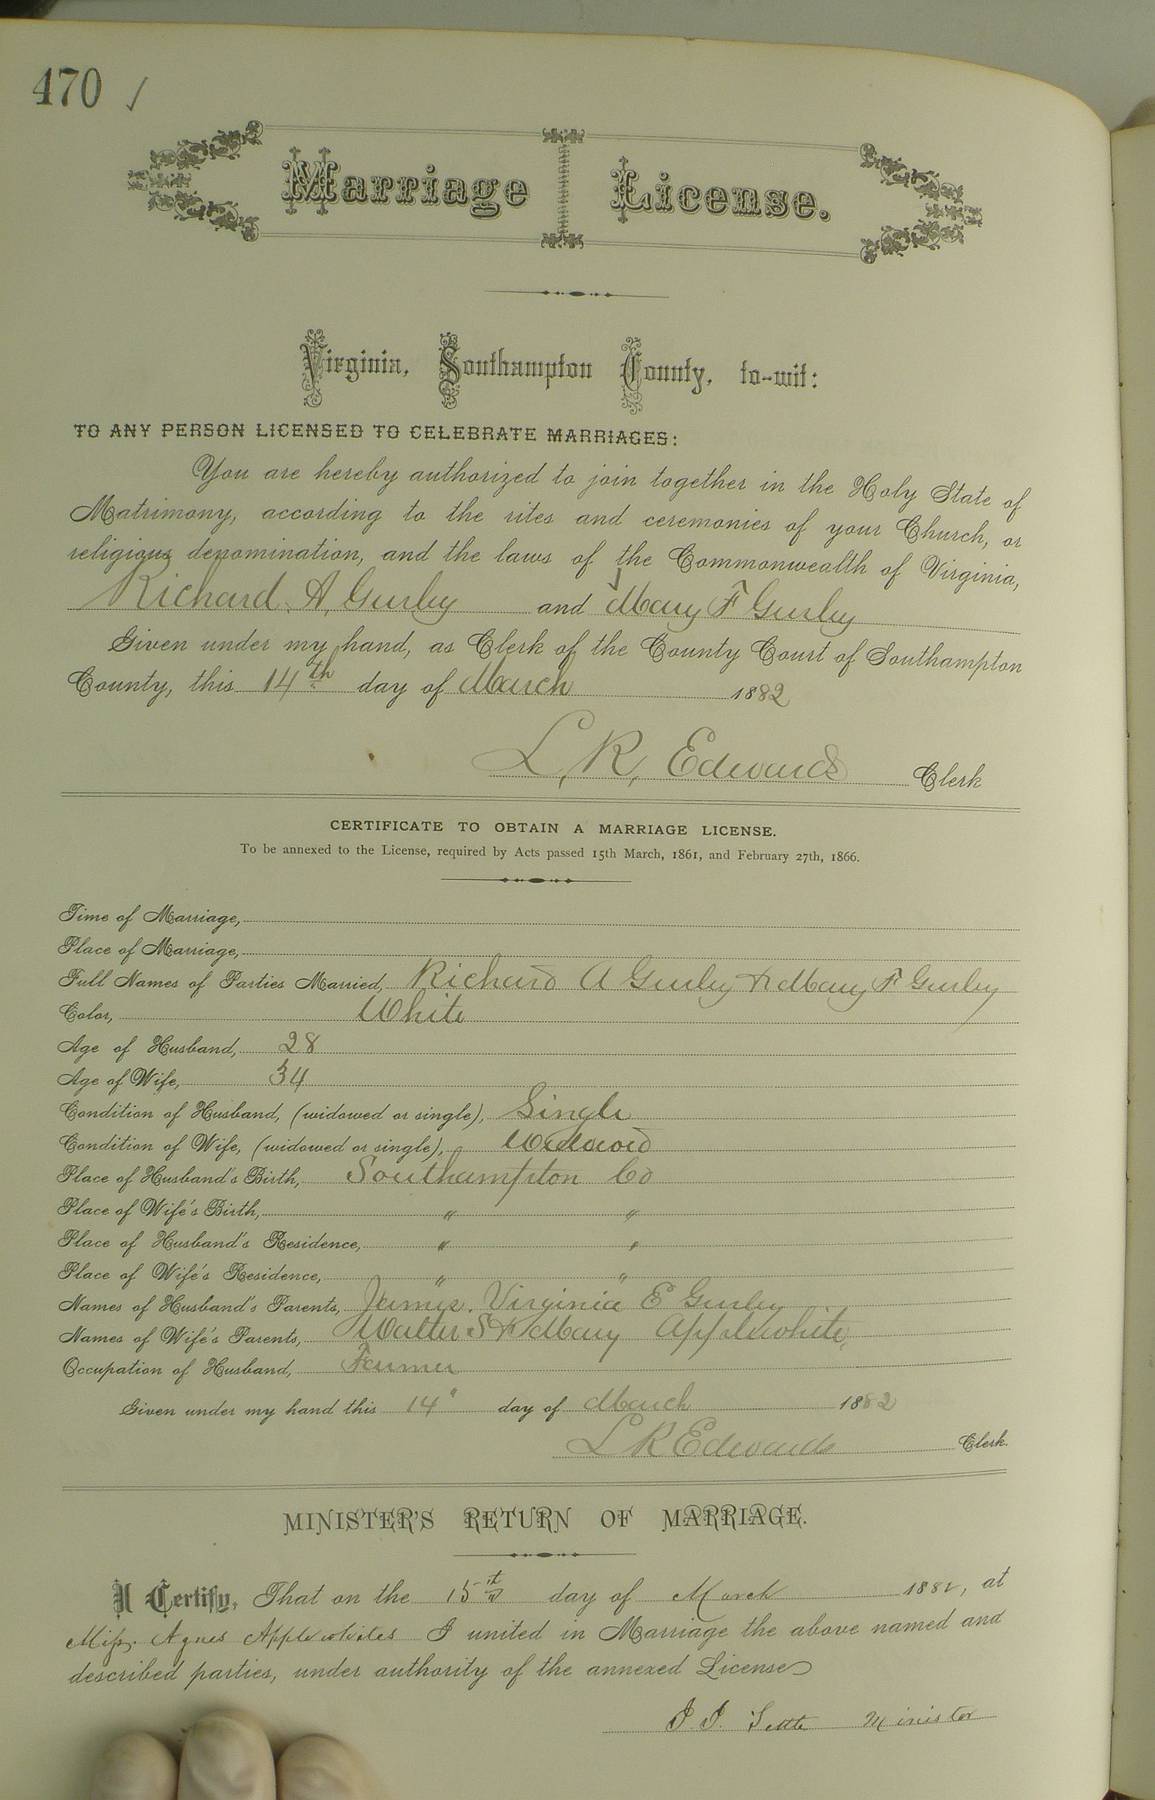 470
Marriage License.
Virginia, Southampton County, to-wit:
TO ANY PERSON LICENSED TO CELEBRATE MARRIAGES:
You are hereby authorized to join together in the Holy State of
Matrimony, according to the rites and ceremonies of your Church, or
religious denomination, and the laws of the Commonwealth of Virginia,
Richard A. Gurley and Mary F Gurley
Given under my hand, as Clerk of the County Court of Southampton
County, this 14th day of March 1882
L, R, Edwards Clerk
CERTIFICATE TO OBTAIN A MARRIAGE LICENSE.
To be annexed to the License, required by Acts passed 15th March, 1861, and February 27th, 1866.
Time of Marriage,
Place of Marriage,
Full Names of Parties Married, Richard A Gurley & Mary F Gurley
Color, White
Age of Husband, 28
Age of Wife, 34
Condition of Husband, (widowed or single), Single
Condition of Wife, (widowed or single), Widowed
Place of Husband's Birth, Southampton Co
Place of Wife's Birth, " "
Place of Husband's Residence, " "
Place of Wife's Residence, " "
Names of Husband's Parents, James. Virginia E Gurley
Names of Wife's Parents, Walter S & Mary Applewhite,
Occupation of Husband, Farmer
Given under my hand this 14" day of March 1882
L R Edwards Clerk.
MINISTER'S RETURN OF MARRIAGE.
I Certify, That on the 15th day of March 1882, at
Miss. Agnes Applewhites I united in Marriage the above named and
described parties, under authority of the annexed License
Minister